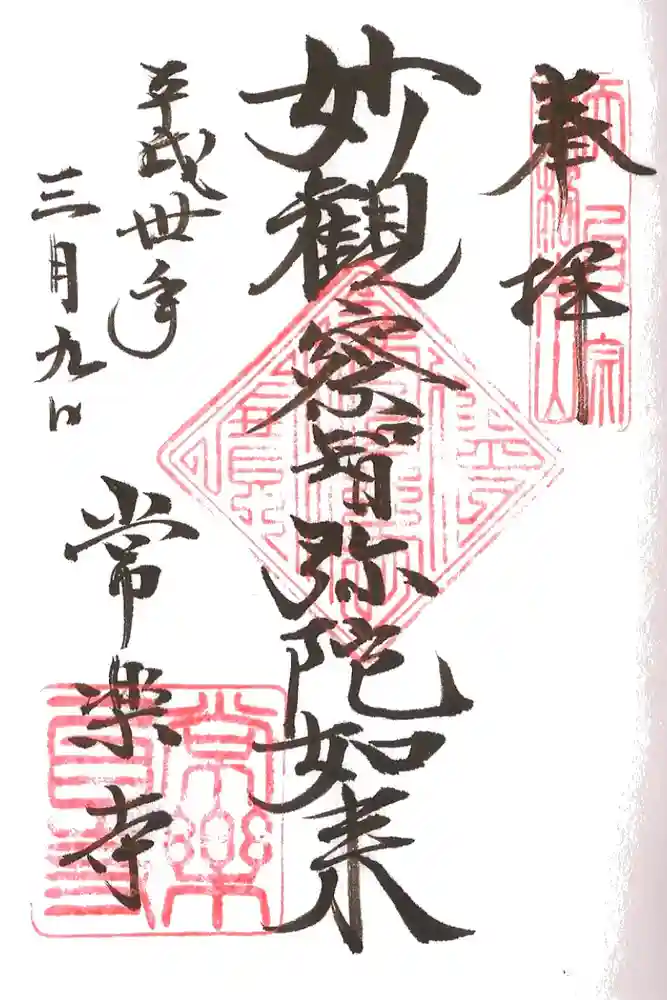 奉拝
妙観察智弥陀如来
平成卅年
三月九日
常楽寺
常楽